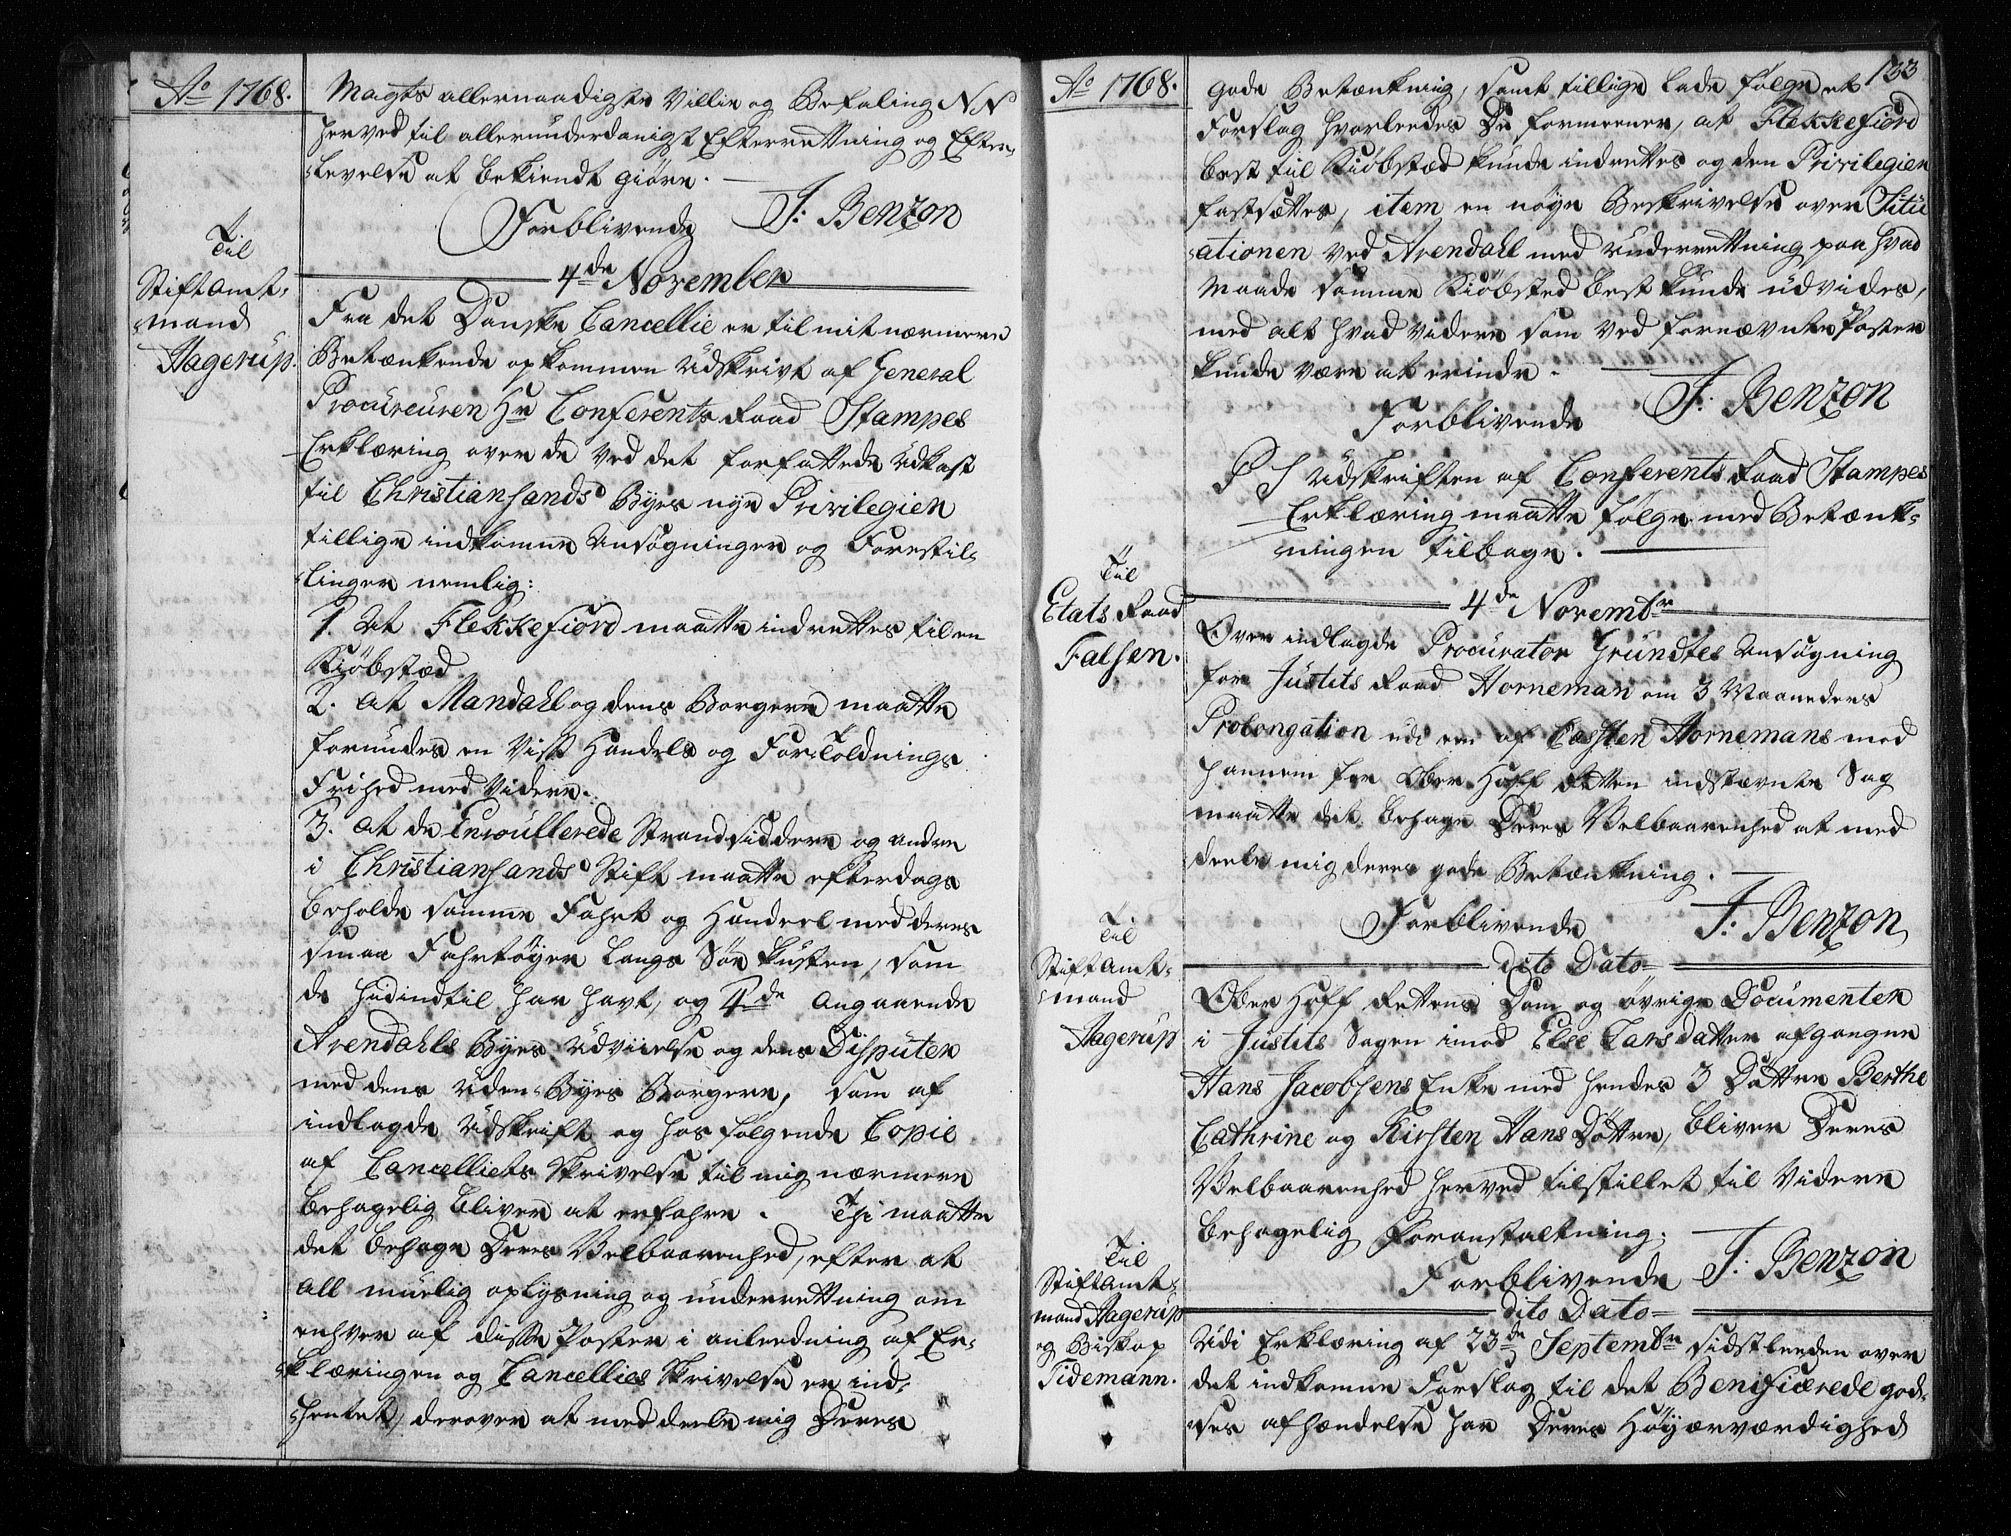 Ao 1768.
Magts allernaadigste Villie og Befaling N N
herved til allerunderdanigst Efterrettning og Efter-
levelse at bekiendt giøre.
Forblivende J: Benzon
4de November
Til
Stiftamt-
mand
Hagerup.
Fra det Danske Cancellie er til mit nærmere
Betænkende opkommen Udskrivt af General
Procureuren Hr Conferents Raad Stampes
Erklæring over de ved det forfattede Udkast
til Christiansands Byes nye Privilegien
tillige indkomne Ansøgninger og Forestil-
linger nemlig:
1. At Flekkefiord maatte indrettes til en
Kiøbstæd
2. at Mandahl og dens Borgere maatte
forundes en vist Handels og Fortoldnings
Frihed med Videre.
3. at de Enroullerede Strandsiddere og andre
i Christiansands Stift maatte efterdags
beholde samme Fahrt og Handeel med deres
smaa Fahrtøyer langs Søe kusten, som
de hidindtil har havt, og 4de angaaende
Arendahls Byes Udviielse og dens Disputer
med dens uden Byes Borgere, som af
indlagde Udskrift og hos følgende Copie
af Cancelliets Skrivelse til mig nærmere
behagelig bliver at erfahre. Thi maatte
det behage Deres Velbaarenhed, efter at
all muelig oplysning og underrettning om
enhver af disse Poster i anledning af Er-
klæringen og Cancellies Skrivelse er ind-
hentet, derover at meddeele mig Deres
Ao 1768.
133
gode Betænkning, samt tillige lade følge et
Forslag hvorledes De formeener, at Flekkefiord
best til Kiøbstæd kunde indrettes og den Privilegien
fastsættes, item en nøye Beskrivelse over Situ
ationen ved Arendahl med Underrettning paa hvad
Maade samme Kiøbsted best kunde udvides,
med alt hvad videre som ved fornævnte Poster
kunde være at erindre.
Forblivende J: Benzon
P S Udskriften af Conferents Raad Stampes
Erklæring maatte følge med Betænk-
ningen tilbage.
4de Novembr
Til
Etats Raad
Falsen.
Over indlagde Procurator Grundtes Ansøgning
for Justits Raad Horneman om 3 Maaneders
Prolongation udi en af Carsten Hornemans med
hannem for Ober Hoff Retten indstævnte Sag
maatte det behage Deres Velbaarenhed at med
deele mig deres gode Betænkning.
Forblivende J: Benzon
dito Dato
Til
Stiftamt-
mand
Hagerup
Ober Hoff Rettens Dom og øvrige Documenter
i Justits Sagen imod Else Larsdatter afgangne
Hans Jacobsens Enke med hendes 3 Døttre Berthe
Cathrine og Kirsten Hans Døttre, bliver Deres
Velbaarenhed herved tilstillet til Videre
behagelig Foranstaltning.
Forblivende J: Benzon
dito Dato
Til
Stiftamt-
mand Hagerup
og Biskop
Tidemann.
Udi Erklæring af 23de Septembr sidstleeden over
det indkomne Forslag til det Benificerede god-
ses afhændelse har Deres Høyærværdighed